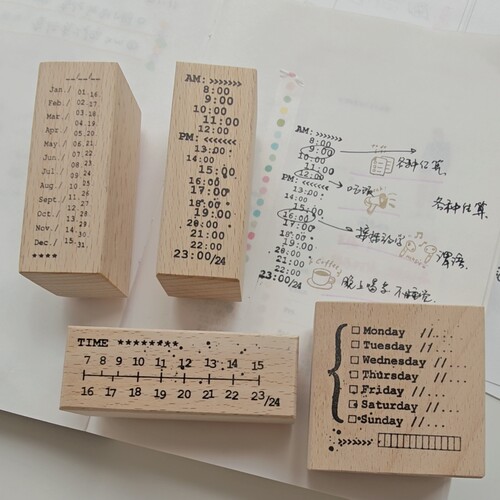 __/__/__
Jan./ 01.16.
Feb./ 02.17.
Mar./ 03.18.
Apr./ 04.19.
May./ 05.20
Jun./ 06.21
Jul./ 07.22
Aug./ 08.23
Sept./
Oct./
Nov./
Dec./ 15.31
****
AM: >>>>>>>
8:00
9:00
10:00
11:00
12:00
PM: <<<<<<<
13:00
14:00
15:00
16:00
17:00
18:00
19:00
20:00
21:00
22:00
23:00/24
AM: >>>>>>>
8:00
9:00
10:00
11:00
12:00
PM: <<<<<<<
13:00
14:00
15:00
16:00
17:00
18:00
19:00
20:00
21:00
22:00
23:00/24
各种估算
各种估算
课语
晚上喝茶 不睡觉
coffee
TIME ********
7 8 9 10 11 12 13 14 15
16 17 18 19 20 21 22 23/24
Monday //...
Tuesday //...
Wednesday //...
Thursday //...
Friday //...
Saturday //...
Sunday //...
>>>>>>>